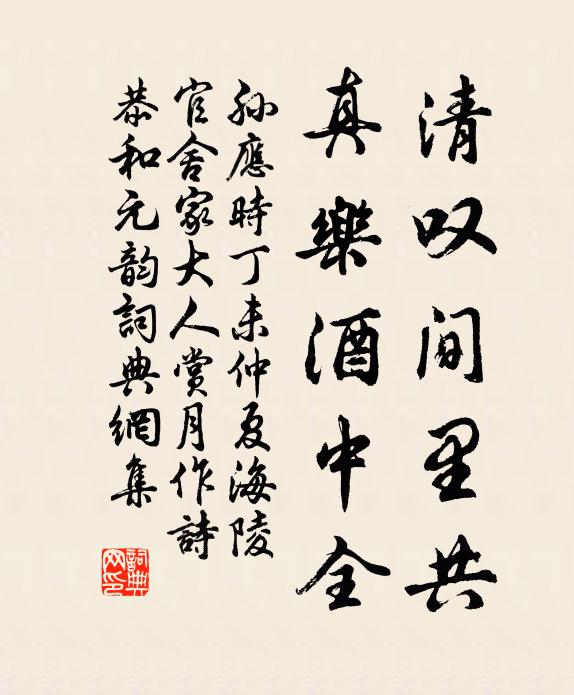 清叹间里共
真樂酒中全
孙應時丁未仲夏海陵
官舍家大人賞月作詩
恭和元韵詞典網集
詞典网印